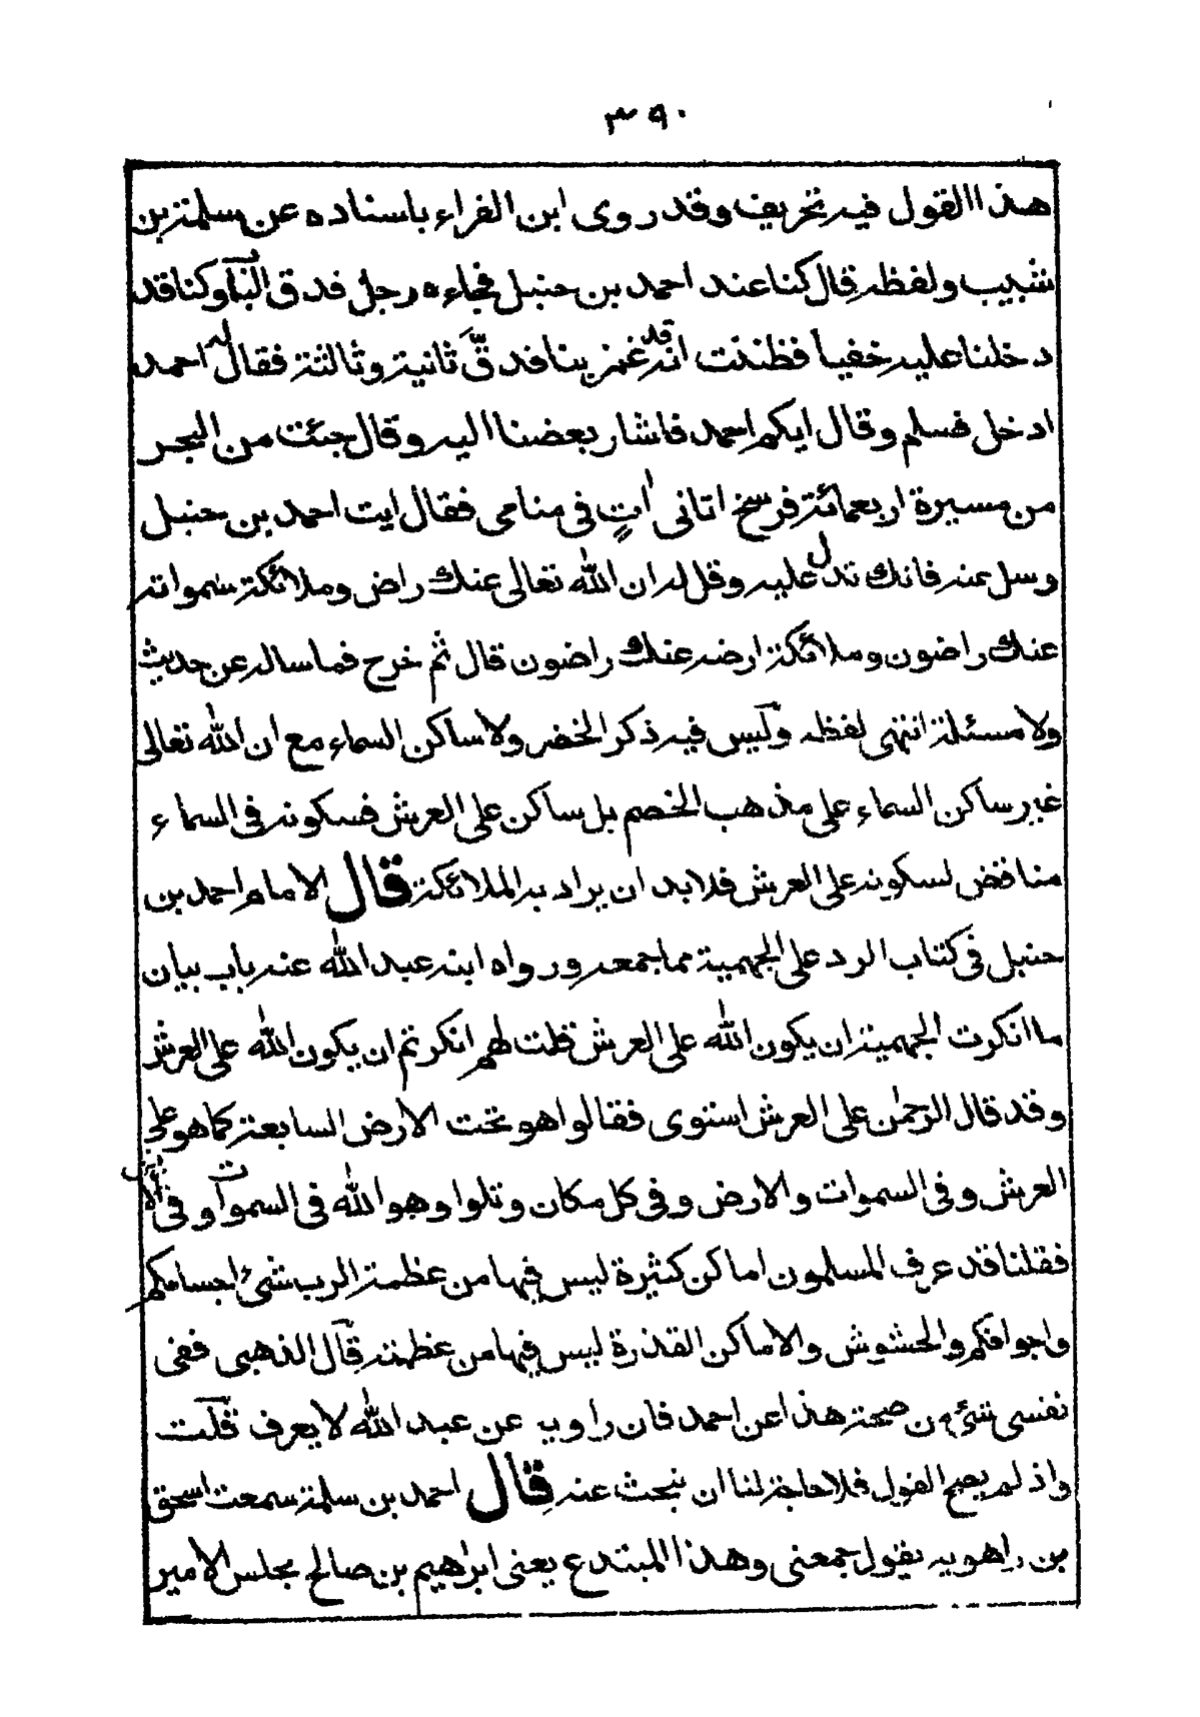 ٣٩٠
هذا القول فيه تحريف وقد روى ابن الفراء باسناده عن سلمة بن
شبيب ولفظه قال كنا عند احمد بن حنبل فجاءه رجل فدق الباب وكنا قد
دخلنا عليه خفيا فظننت انه قد غمز بنا فدقّ ثانية وثالثة فقال له احمد
ادخل فسلم وقال ايكم احمد فاشار بعضنا اليه وقال جئت من البحر
من مسيرة اربعمائة فرسخ اتانى اٰتٍ فى منامى فقال ايت احمد بن حنبل
وسل عنه فانك تدل عليه وقل له ان الله تعالى عنك راض وملائكة سمواته
عنك راضون وملائكة ارضه عنك راضون قال ثم خرج فما ساله عن حديث
ولا مسئلة انتهى لفظه وليس فيه ذكر الخضر ولا ساكن السماء مع ان الله تعالى
غير ساكن السماء على مذهب الخصم بل ساكن على العرش فسكونه فى السماء
مناقض لسكونه على العرش فلا بد ان يراد به الملائكة قال الامام احمد بن
حنبل فى كتاب الرد على الجهمية مما جمعه ورواه ابنه عبد الله عنه باب بيان
ما انكرت الجهمية ان يكون الله على العرش قلت لهم انكرتم ان يكون الله على العرش
وقد قال الرحمٰن على العرش استوى فقالوا هو تحت الارض السابعة كما هو على
العرش وفى السموات والارض وفى كل مكان وتلوا وهو الله فى السموات وفى الارض
فقلنا قد عرف المسلمون اماكن كثيرة ليس فيها من عظمة الرب شئ اجسامكم
واجوافكم والحشوش والاماكن القذرة ليس فيها من عظمته قال الذهبى ففى
نفسى شئ من صحة هذا عن احمد فان راويه عن عبد الله لا يعرف قلت
واذ لم يصح القول فلا حاجة لنا ان نبحث عنه قال احمد بن سلمة سمعت اسحق
بن راهويه يقول جمعنى وهذا المبتدع يعنى ابراهيم بن صالح مجلس الامير